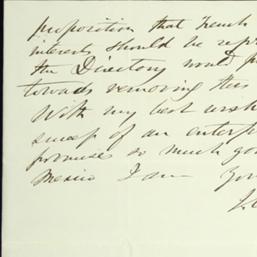 proposition that French
interests should be repr
the Directory would p
towards removing this
With my best wish
success of an enterp
promises so much good
Mexico I am You